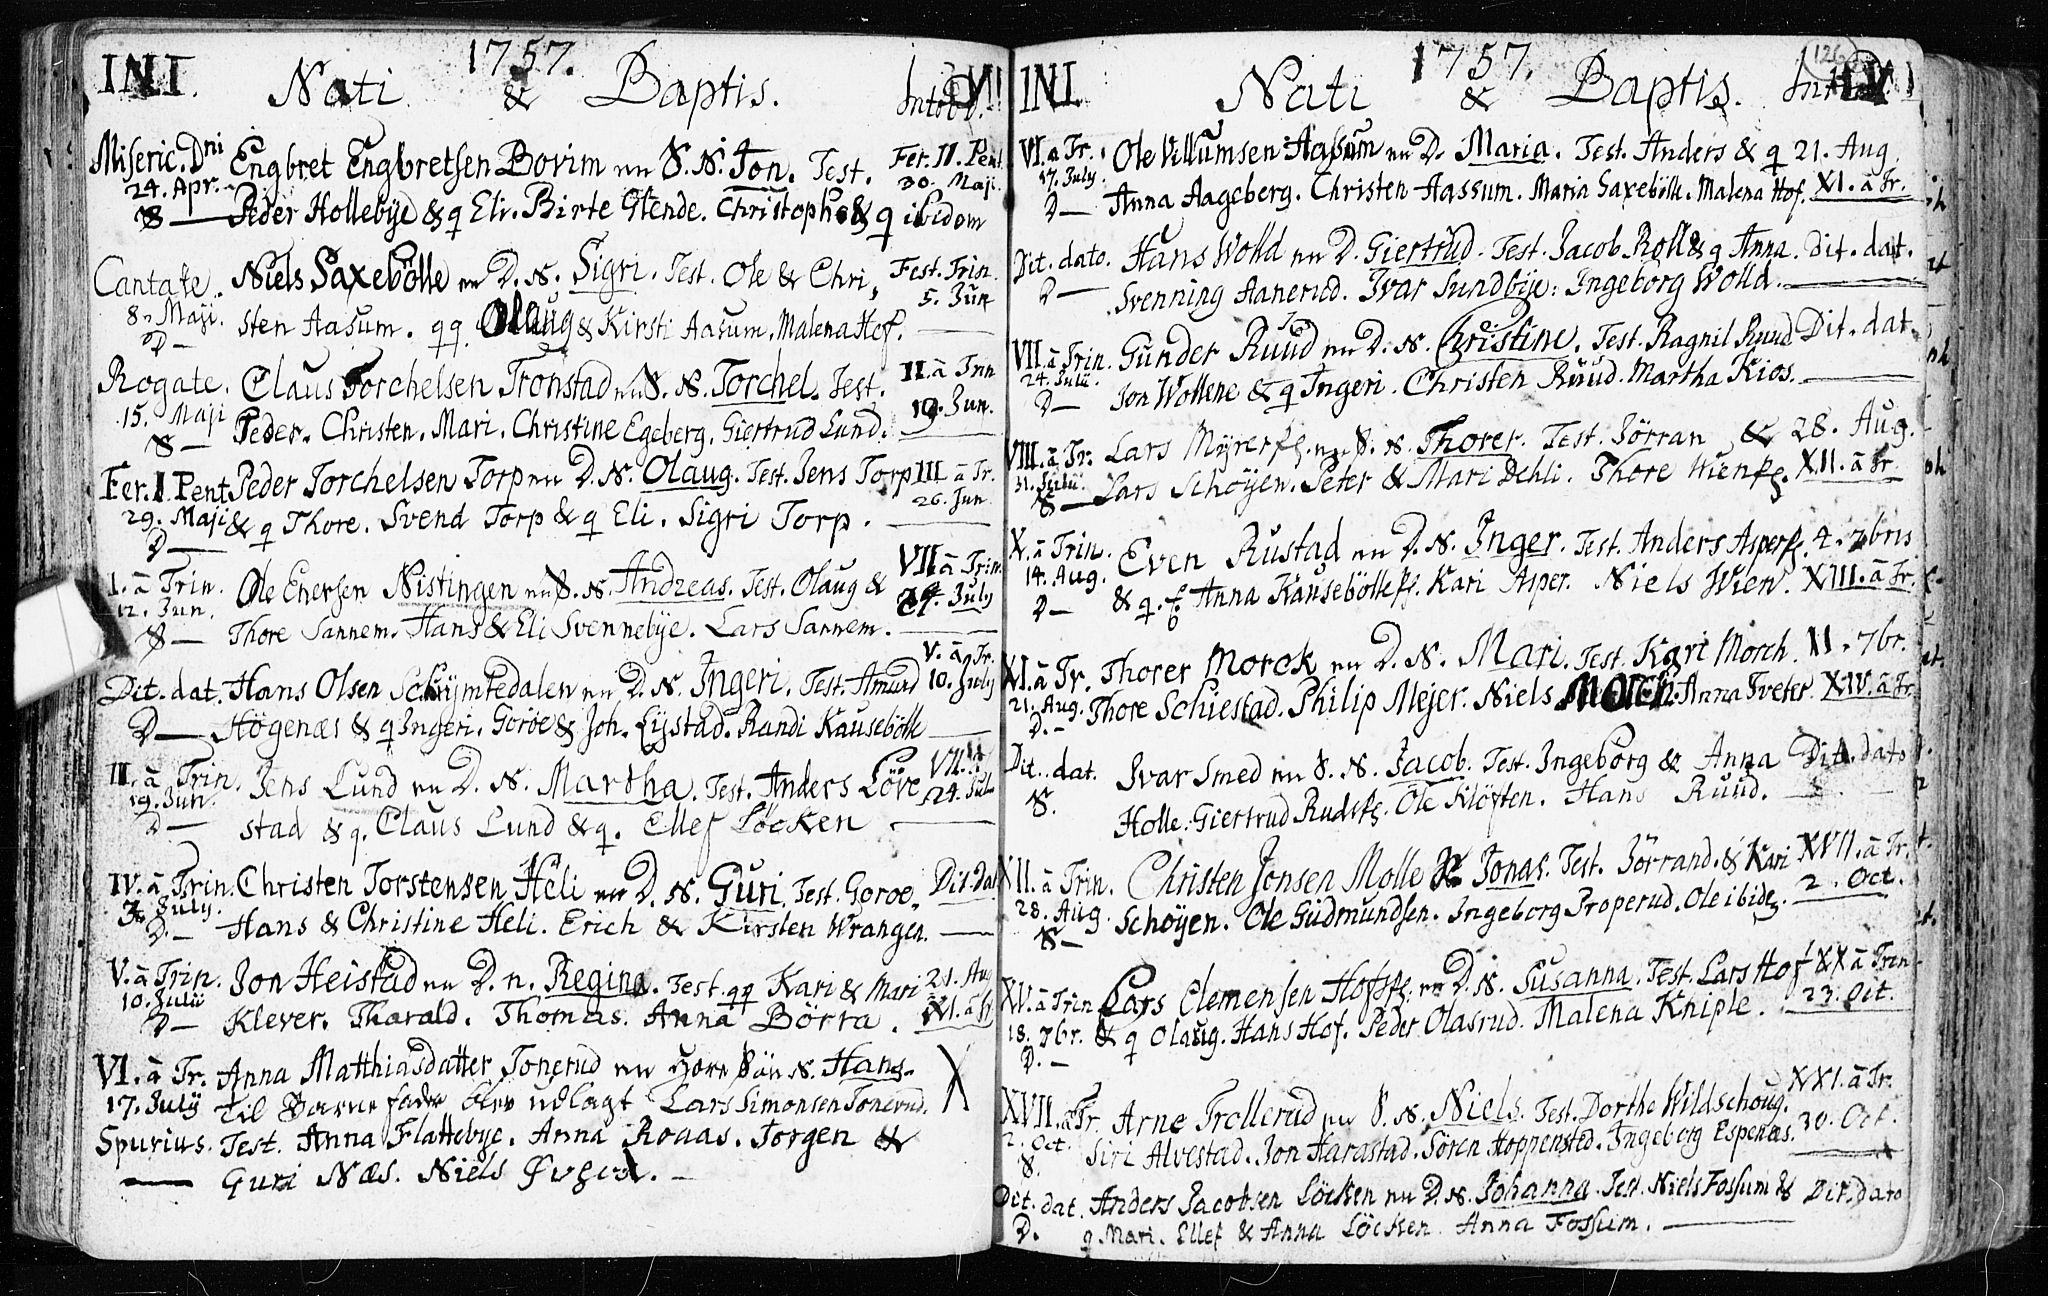 INI. 1757. IVI
Nati & Baptis. Introd.
Miseric. Dni Engbret Engbretsen Bovim S. N. Jon. Test. Fer. II. Pent.
24. Apr. 30. Maji.
S — Peder Hollebye & q Eli. Birte Stende. Christoph. & q ibidem
Cantate. Niels Saxebölle D. N. Sigri. Test. Ole & Chri, Fest. Trin.
8. Maji. sten Aasum. qq. Olaug & Kirsti Aasum, Malena Hof. 5. Jun
D —
Rogate. Claus Torchelsen Tronstad S. N. Torchel. Test. II. à Trin
15. Maji Peder. Christen. Mari. Christine Egeberg. Giertrud Lund. 19. Jun.
S —
Fer. I. Pent Peder Torchelsen Torp D. N. Olaug. Test. Jens Torp III à Tr.
29. Maji & q Thore. Svend Torp & q Eli. Sigri Torp. 26. Jun.
D —
I. à Trin. Ole Enersen Nistingen S. N. Andreas. Test. Olaug & VII à Trin.
12. Jun. 24. July
S — Thore Sannem. Hans & Eli Svennebye. Lars Sannem.
Dit. dat. Hans Olsen D. N. Ingeri. Test. Amund V. à Tr. 10. July
D — Högenæs & q Ingeri. Goröe & Joh. Lystad. Randi Kausebölle
III. à Trin. Jens Lund D. N. Martha. Test. Anders Löve VII. à
19. Jun. 24. Jul
D — stad & q. Claus Lund & q. Ellef Löcken
IV. à Trin. Christen Torstensen Heli D. N. Guri. Test. Goroe, Dit. dat
3. July.
D. — Hans & Christine Heli. Erich & Kirsten Wrangen.
V. à Trin. Jon Heistad D. n. Regina. Test. qq Kari & Mari 21. Aug
10. Julii
D — Klever. Tharald. Thomas. Anna Börra. XI. à Tr
VI. à Tr. Anna Matthiasdatter Tonerud Hore Sön N. Hans.
17. July Til Barnefader blev udlagt Lars Simonsen Tonerud.
Spurius. Test. Anna Flattebye. Anna Roaas. Jorgen &
— Guri Næs. Niels —
INI. 1757. 126
Nati & Baptis. Introd.
VI. à Tr. Ole Villumsen Aasum D. Maria. Test. Anders & q 21. Aug.
17. July. Anna Aageberg. Christen Aassum. Maria Saxebölle. Malena Hof. XI. à Tr.
D —
Dit. dato. Hans Wolld D. Giertrud. Test. Jacob Roll & q Anna. Dit. dat.
D — Svenning Aanerud. Ivar Sundbye. Ingeborg Wolld.
VII. à Trin. Gunder Ruud D. N. Christine. Test. Ragnil Ruud Dit. dat
24. Julii. Jon Wollene & q Ingeri. Christen Ruud. Martha Kios.
D —
VIII. à Tr. Lars Myrer S. N. Thorer. Test. Jörran & 28. Aug.
31. Julii Lars Schöyen. Peter & Mari Dehli. Thore XII. à Tr.
S —
X. à Trin. Even Rustad D. N. Inger. Test. Anders 4. 7bris
14. Aug. & q. Anna Kari Asper. Niels Wien. XIII. à Tr.
D —
XI. à Tr. Thorer Morck D. N. Mari. Test. Kari Morch. 11. 7br.
21. Aug. Thore Schiestad. Philip Mejer. Niels Morch. Anna Tveter. XIV. à Tr
D. —
Dit. dat. Ivar Smed S. N. Jacob. Test. Ingeborg & Anna Dit. dato
S. Holle. Giertrud Ole Klöften. Hans Ruud.
XII. à Trin. Christen Jonsen Molle N. Jonas. Test. Jörrand. & Kari XVII. à Tr.
28. Aug Schöyen. Ole Gudmundsen. Ingeborg Properud. Ole ibid. 2. Oct.
S —
XV. à Trin Lars Clemensen D. N. Susanna. Test. Lars Hof XX à Trin
18. 7br. & q Olaug. Hans Hof. Peder Olasrud. Malena Kniple. 23. Oct.
D. —
XVII. à Tr. Arne Trollerud S. N. Niels. Test. Dorthe Wildschoug. XXI. à Tr.
2. Oct. Siri Alvestad. Jon Harastad. Sören Hoppensted. Ingeborg Espenæs. 30. Oct.
S.
Dit. dat. Anders Jacobsen Löcken D. N. Johanna. Test. Niels Fossum & Dit. dato
D. q Mari. Ellef & Anna Löcken. Anna Fossum.